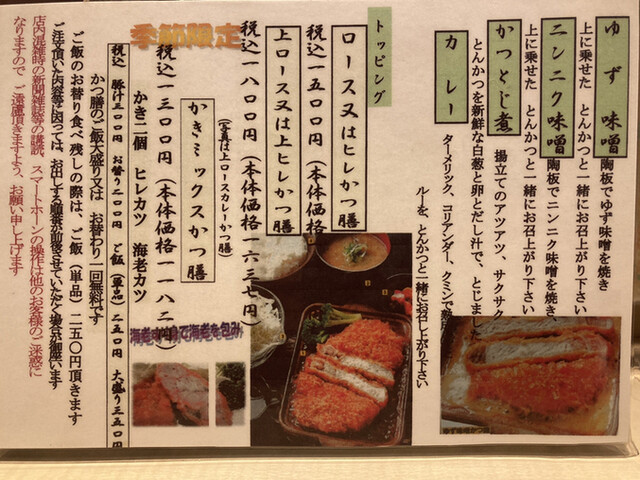 ゆず味噌
陶板でゆず味噌を焼き
上に乗せた とんかつと一緒にお召上がり下さい
ニンニク味噌
陶板でニンニク味噌を焼き、
上に乗せた とんかつと一緒にお召上がり下さい
かつとじ煮
揚立てのアツアツ、サクサク
とんかつを新鮮な白葱と卵とだし汁で、とじました
カレー
ターメリック、コリアンダー、クミンで
ルーを、とんかつと一緒にお召し上がり下さい
トッピング
ロース又はヒレかつ膳
税込一五〇〇円(本体価格
上ロース又は上ヒレかつ膳
税込一八〇〇円(本体価格一六三七円)
(写真は上ロースカレーかつ膳)
季節限定
かきミックスかつ膳
税込一三〇〇円(本体価格一一八二円)
かき二個 ヒレカツ 海老カツ
海老を包み
税込 豚汁 お替り二〇〇円 ご飯(単品)二五〇円 大盛り三五〇円
かつ膳のご飯大盛り又は お替わり一回無料です
ご飯のお替り食べ残しの際は、ご飯(単品)二五〇円頂きます
ご注文頂いた内容等に因っては、お出しする順番が前後させていただく場合が御座います
店内混雑時の新聞雑誌等の講読、スマートホーンの操作は他のお客様のご迷惑に
なりますので ご遠慮頂きますよう、お願い申し上げます